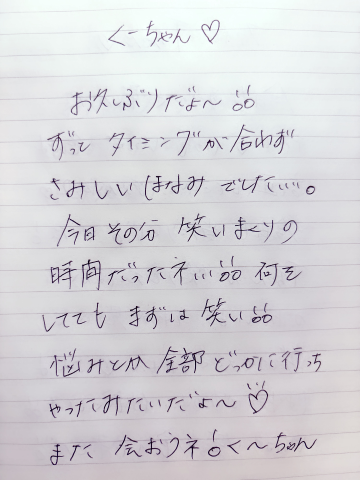 くーちゃん♡
お久しぶりだよ〜!!
ずって タイミングが合わず
さみしい ほなみ でした…。
今日 その分 笑いまくりの
時間だったネ…!! 何を
してても まずは 笑い!!
悩みとか 全部 どっかに行っち
ゃったみたいだよ〜♡
また 会おうネ!く〜ちゃん